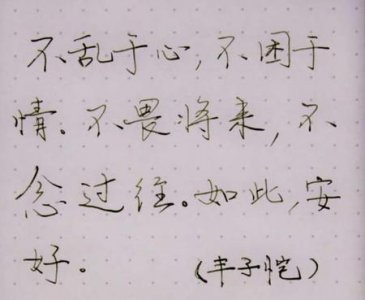 不乱于心，不困于
情。不畏将来，不
念过往。如此，安
好。 （丰子恺）